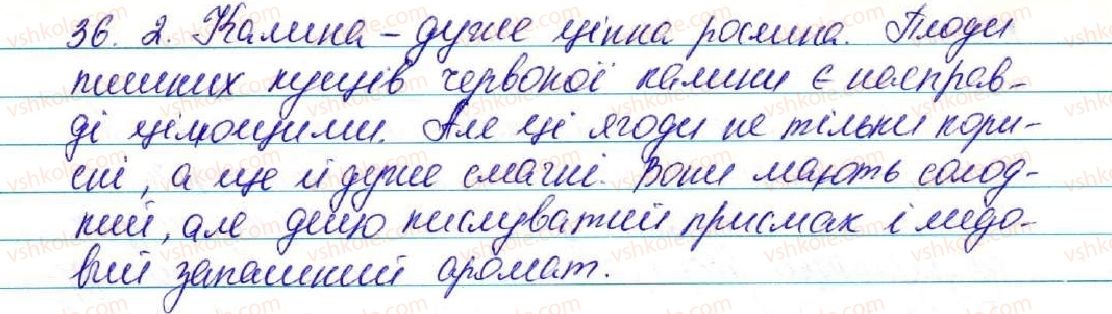 36. 2. Калина – дуже цінна рослина. Плоди
пишних кущів червоної калини є насправ-
ді цілющими. Але ці ягоди не тільки кори-
сні, а ще й дуже смачні. Вони мають солод-
кий, але дещо кислуватий присмак і медо-
вий запашний аромат.